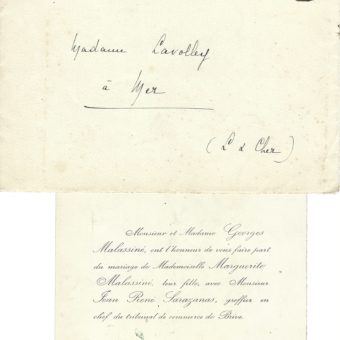 Madame Lavolley
à Mer
(L & Cher)
Monsieur et Madame Georges
Malassiné, ont l'honneur de vous faire part
du mariage de Mademoiselle Marguerite
Malassiné, leur fille, avec Monsieur
Jean René Sarazanas, greffier en
chef du tribunal de commerce de Brive.